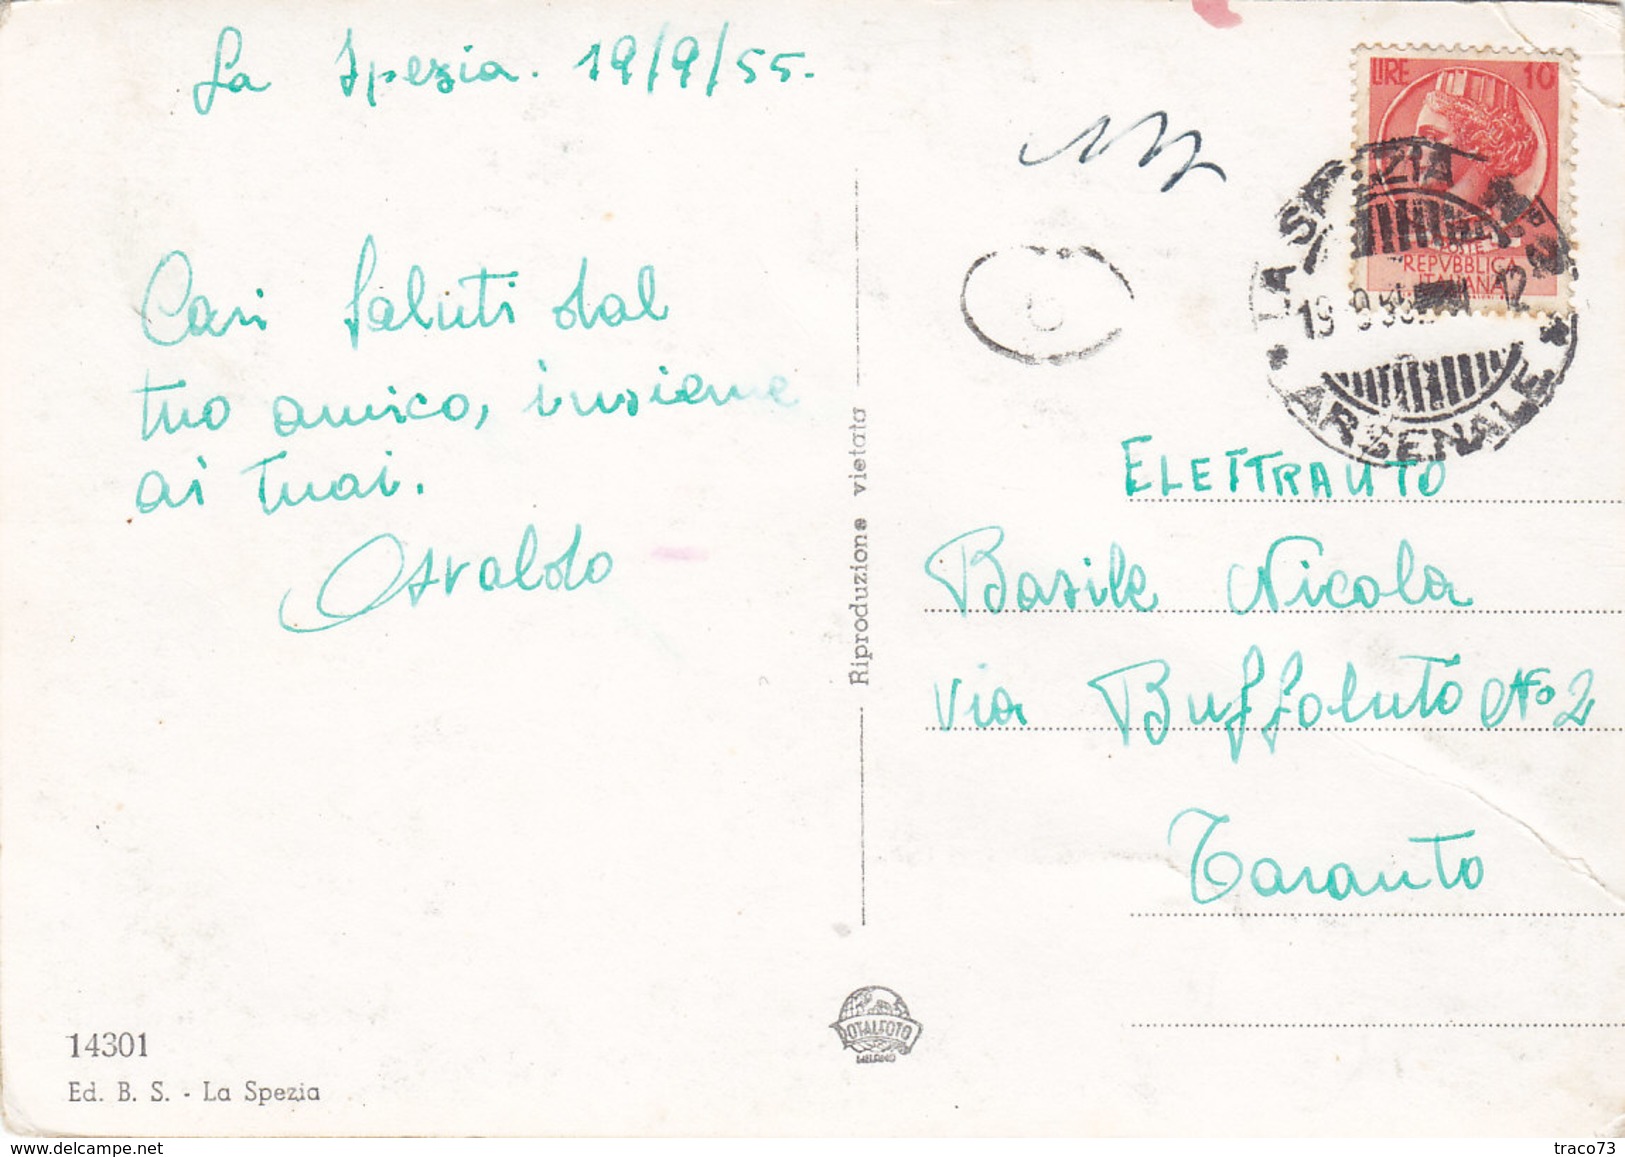 La Spezia. 19/9/55.
Cari saluti dal
tuo amico, insieme
ai tuoi.
Osvaldo
14301
Ed. B. S. - La Spezia
Riproduzione vietata
TOTALFOTO
MILANO
LIRE 10
POSTE
REPVBBLICA
ITALIANA
LA SPEZIA
19 9 55 12
ARSENALE
ELETTRAUTO
Basile Nicola
via Buffoluto No 2
Taranto
traco73